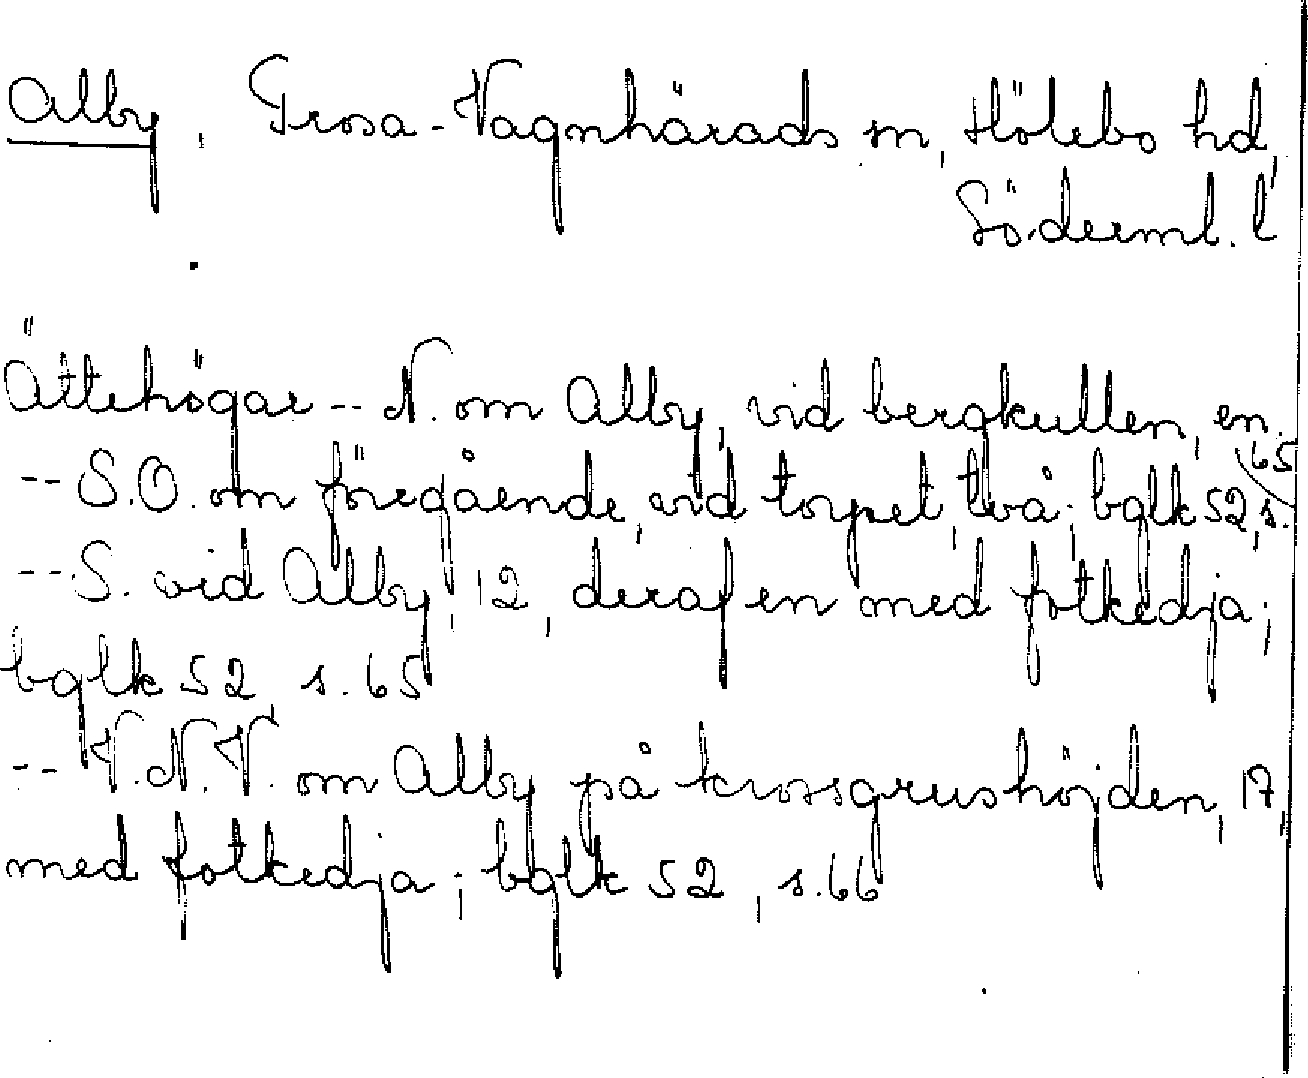 Alby. Trosa-Vagnhärads sn, Hölebo hd,
Söderml. l
Ättehögar -- N. om Alby, vid bergkullen, en.
-- S.O. om föregående, vid torpet, två; bglk 52, s. 65
-- S. vid Alby, 12, deraf en med fotkedja;
bglk 52 s. 65
-- V.N.V. om Alby på krossgrushöjden, 17,
med fotkedja; bglk 52, s. 66